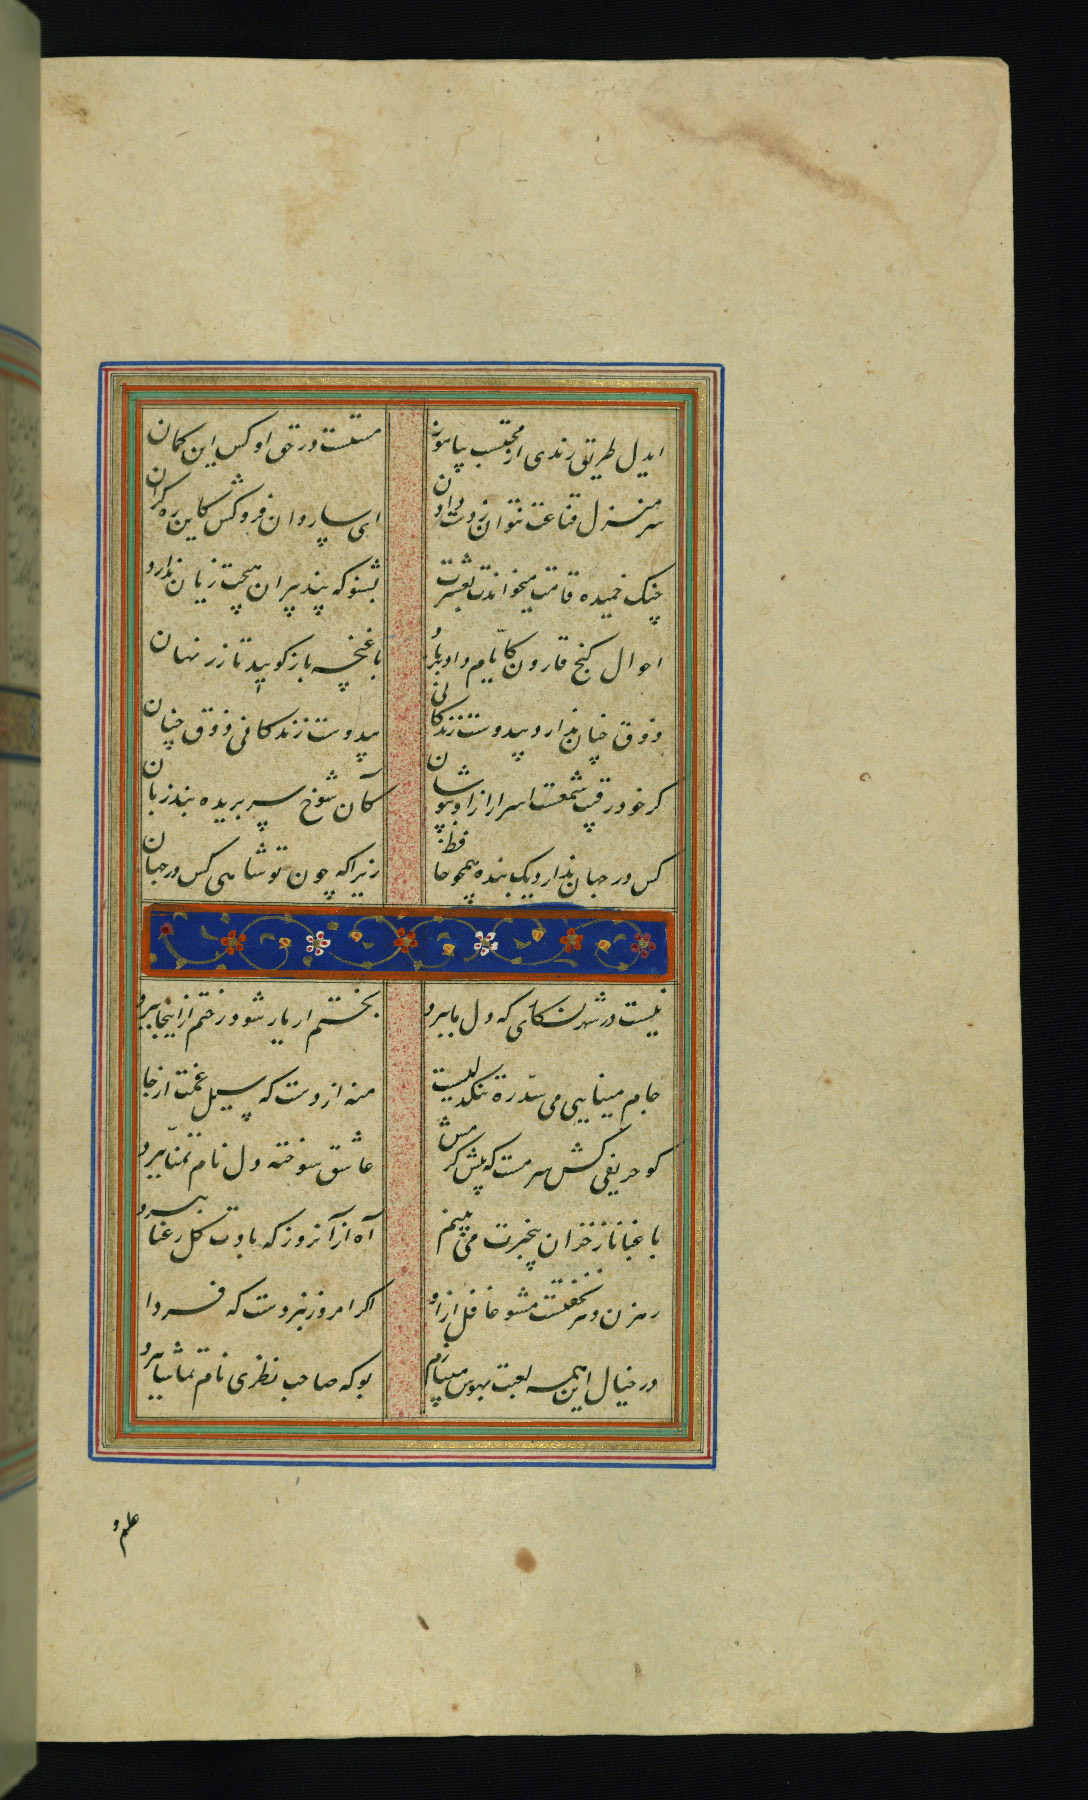 ایدل طریق رندی از محتسب بیاموز
مستست و در حق او کس این گمان
سرمنزل قناعت نتوان ز دست دادن
ای ساروان فروکش کاین ره کران
چنگ خمیده قامت میخواندت بعشرت
بشنو که پند پیران هیچت زیان ندارد
احوال گنج قارون کایام داد بر باد
با غنچه باز گویید تا زر نهان
ذوق چنان ندارد بیدوست زندگانی
بیدوست زندگانی ذوق چنان
گر خود رقیب شمعست اسرار ازو بپوشان
کان شوخ سر بریده بند زبان
کس در جهان ندارد یک بنده همچو حافظ
زیرا که چون تو شاهی کس در جهان
نیست در شهر نگاری که دل ما ببرد
بختم ار یار شود رختم از اینجا ببرد
جام مینایی می سد ره تنگدلیست
منه از دست که سیل غمت از جا
کو حریفی کش سرمست که پیش کرمش
عاشق سوخته دل نام تمنا ببرد
باغبانا ز خزان بیخبرت می بینم
آه از آنروز که بادت گل رعنا ببرد
رهزن دهر نخفتست مشو غافل ازو
اگر امروز نبردست که فردا
در خیال این همه لعبت بهوس میبازم
بو که صاحب نظری نام تماشا ببرد
علم و